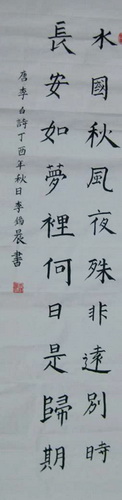 水國秋風夜殊非遠別時
長安如夢裡何日是歸期
唐李白詩丁酉年秋日李鴻晨書